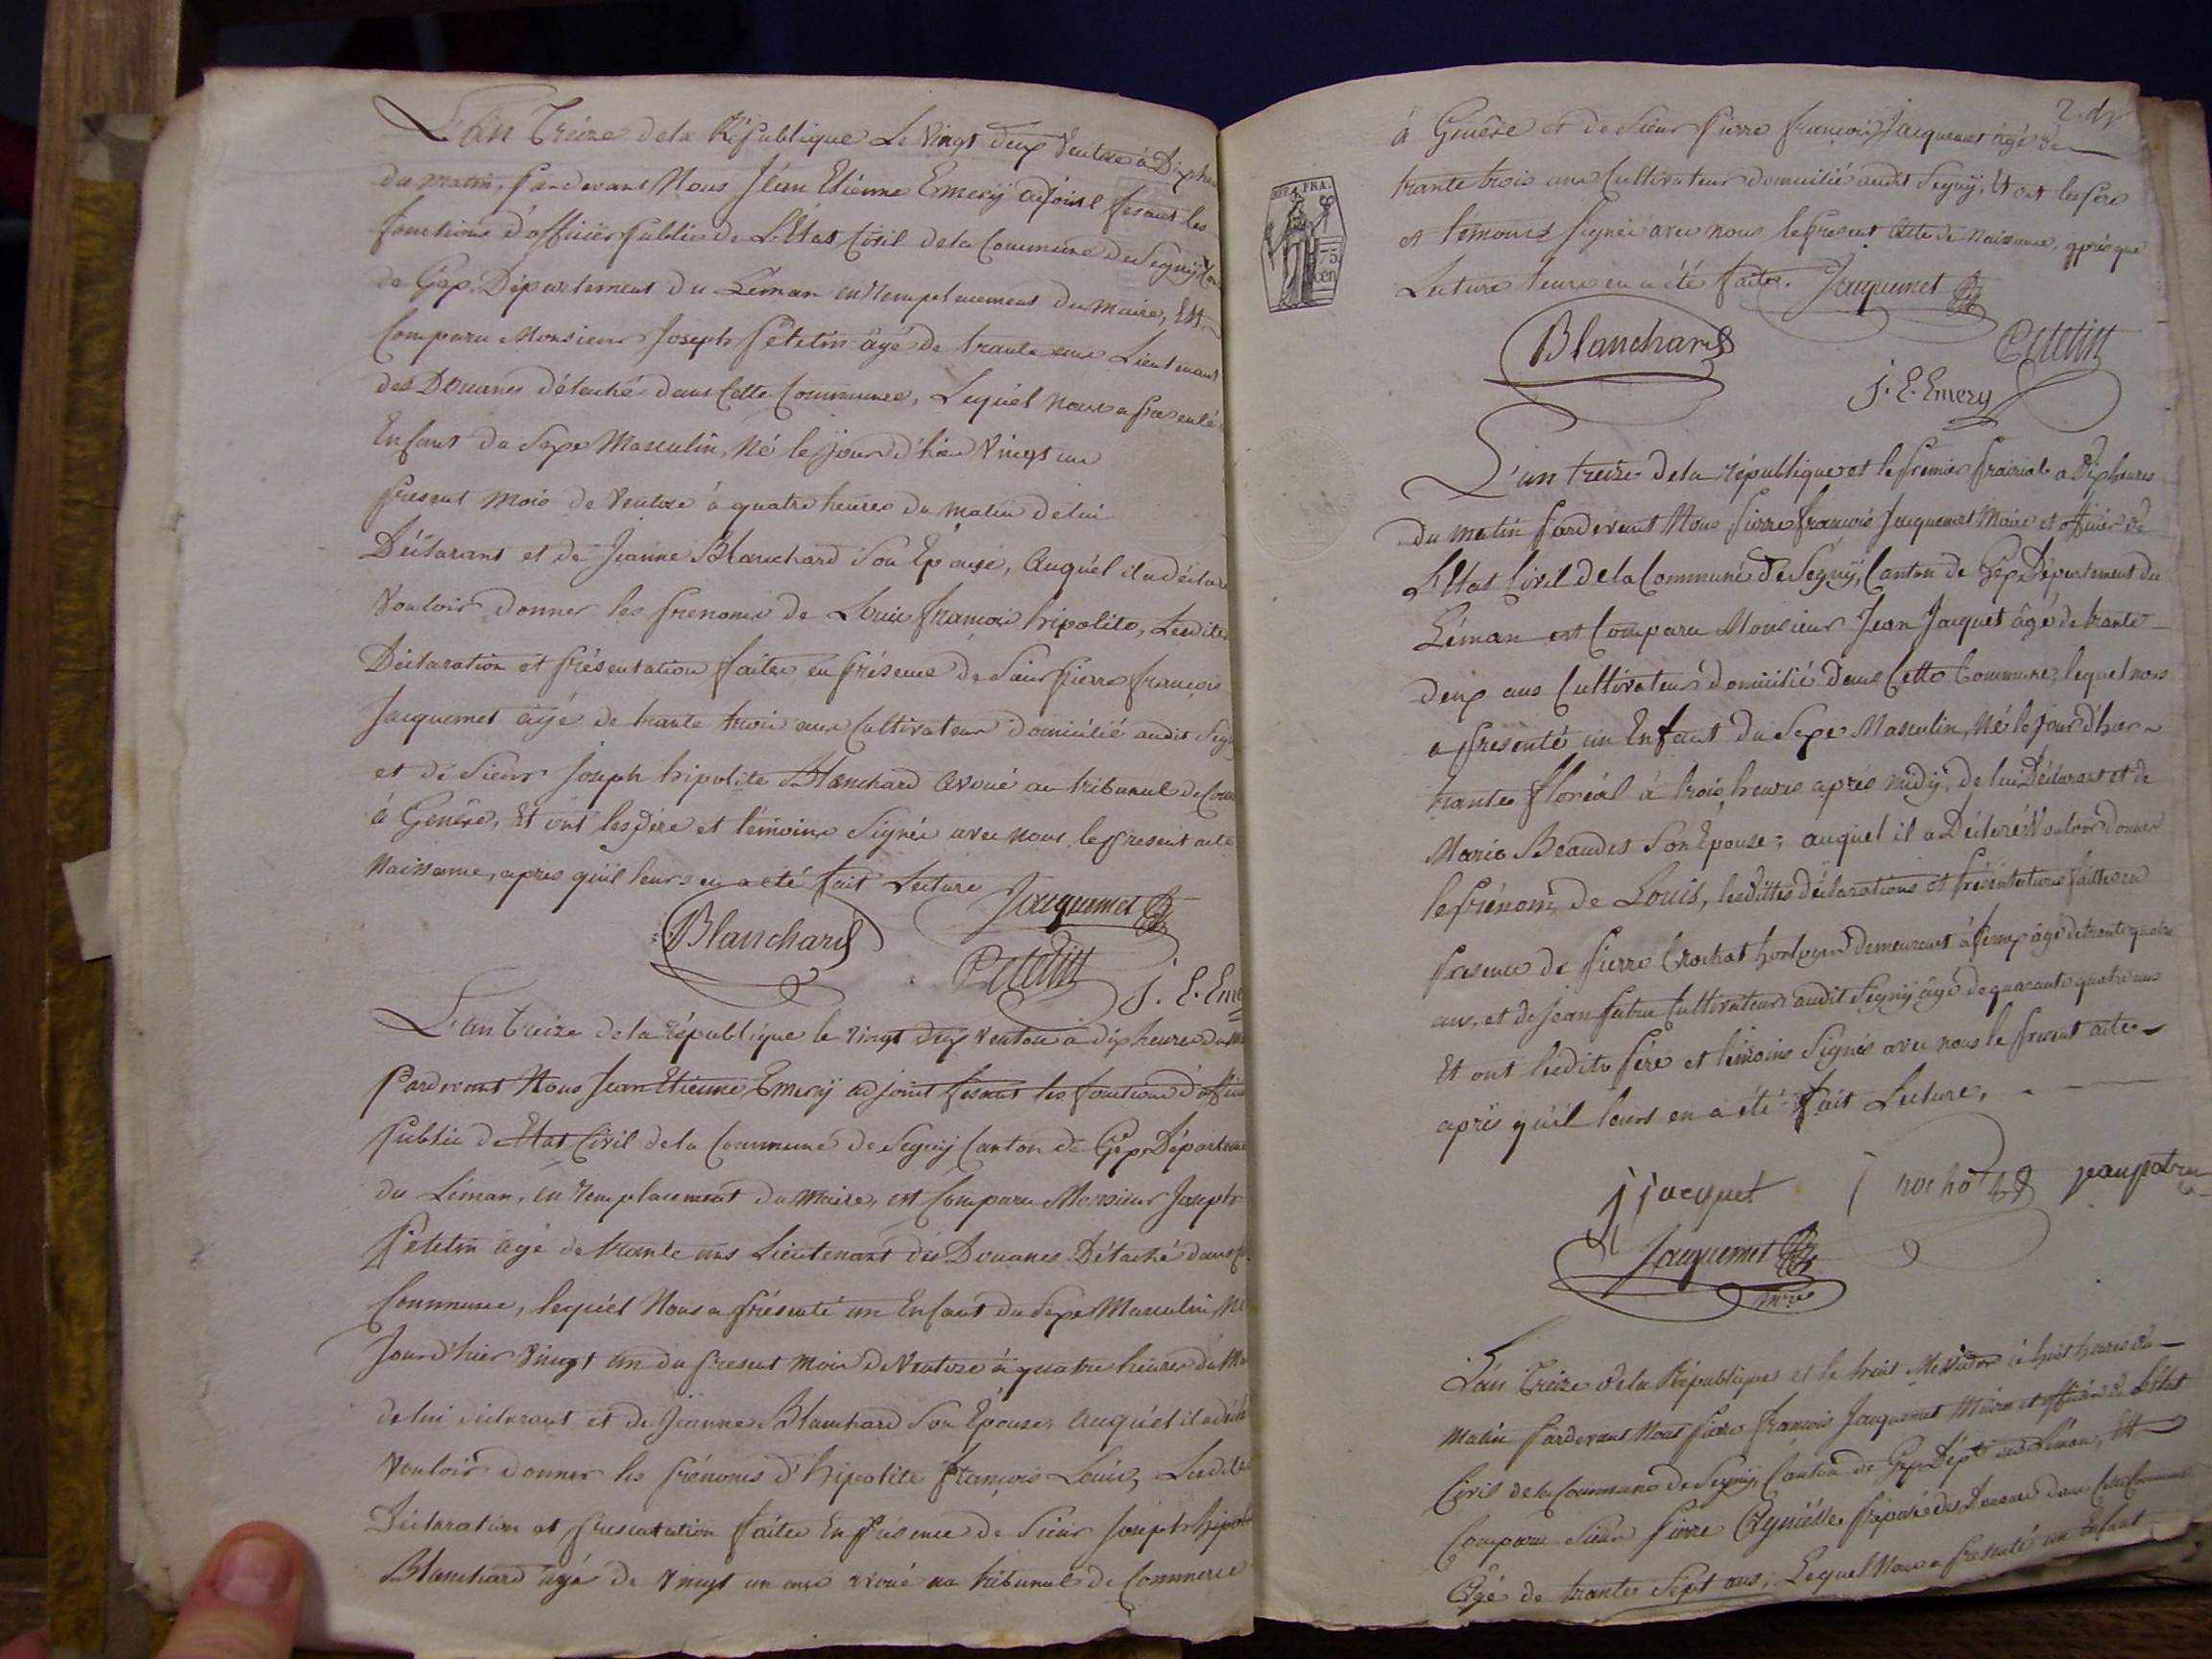 L'an Treize dela République Le Vingt deux Ventose à Dix heu
du matin, Pardevant Nous Jean Etienne Emery adjoint fesant les
fonctions d'officier public de L'Etat Civil dela Commune de Segny Can
de Gex Département du Léman en remplacement du maire, Est
Comparu Monsieur Joseph Petetin âgé de trante ans Lieutenant
des Douanes détaché dans Cette Commune, Lequél nous a presenté
Enfant du Sexe Masculin, Né le jour d'hier Vingt un
present mois de Ventose à quatre heures du matin de lui
Déclarant et de Jeanne Blanchard Son Epouse, Auquél il a déclaré
Vouloir donner les prenoms de Louis françois hipolite, Lesdites
Déclaration et présentation faites en présence de Sieur Pierre françois
Jacquemet âgé de trante trois ans Cultivateur domicilié audit Seg
et de Sieur Joseph hipolite Blanchard avoué au tribunal de Com
à Genêve, Et ont les père et témoins Signés avec nous le present acte
Naissance, apres qu'il leurs en a été fait Lecture
Jacquemet
Blanchard
Petetin
J. E. Eme
L'an Treize dela république le vingt deux ventose à dix heures du m
Pardevant Nous Jean Etienne Emery adjoint fesant les fonctions d'offici
public de Etat Civil dela Commune de Segny Canton de Gex Départeme
du Léman, en remplacement du maire, est Comparu Monsieur Joseph
Petetin âgé de trante ans Lieutenant des Douanes Détaché dans C
Commune, lequél Nous a présenté un Enfant du Sexe Masculin, Né
Jour d'hier Vingt un du present mois de Ventose à quatre heures du Ma
de lui déclarant et de Jeanne Blanchard Son Epouse, Auquél il a décla
Vouloir donner les prénoms d'hipolite françois Louis, Lesdites
Déclaration et presentation faites En présence de Sieur Joseph hipolit
Blanchard âgé de Vingt un ans avoué au tribunal de Commerce
à Genêve et de Sieur Pierre françois Jacquemet âgé de
trante trois ans Cultivateur domicilié audit Segny, Et ont les père
et témoins signés avec nous le present Acte de Naissance, après que
Lecture leurs en a été faite. Jacquemet
REP. FRA.
75
cen
Blanchard
Petetin
J. E. Emery
L'an treize dela république et le premier prairial a Dix heures
du matin pardevant Nous Pierre françois Jacquemet Maire et officier de
L'Etat Civil dela Commune de Segny, Canton de Gex Département du
Léman est Comparu Monsieur Jean Jacquet âgé de trante
deux ans Cultivateur domicilié dans Cette Commune, lequel nous
a presenté un Enfant du Sexe Masculin, Né le jour d'hier
trantes floréal à trois heures après midy, de lui Déclarant et de
Marie Beaudet Son Epouse; auquel il a Déclaré Vouloir donner
le prénom de Louis, lesdittes déclarations et présentations faittes en
presence de Pierre Crochat horloger demeurant à agé de trante quatre
ans, et de Jean Cultivateur audit Segny âgé de quarante quatre ans
Et ont lesdits père et témoins Signés avec nous le present acte
après qu'il leurs en a été fait Lecture,
j jacquet
Jacquemet
L'an Treize dela République et le huit Messidor à huit heures du
matin Pardevant Nous Pierre françois Jacquemet Maire et officier de L'Etat
Civil dela Commune de Segny, Canton de Gex Dépt du Léman, Est
Comparu Sieur Pierre Préposé des Douanes dans Cette Commune
Agé de trantes Sept ans, Lequel Nous a presenté un Enfant